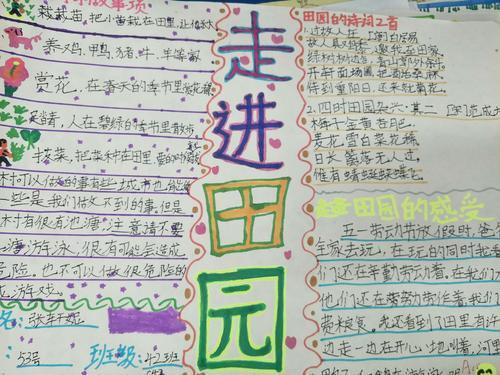 走进田园
栽栽苗,把小苗栽在田里,让
养鸡,鸭,猪,牛,羊等家
赏花,在春天的季节里
人在碧绿的季节里散步
搭菜,把菜种在田里
村可以做的事有些城市也能
一些是我们做不到的事。但是
村有很有池塘,注意请不要
游泳,很有可能会造成
危险。也不可以做很危险的
游戏。
名:张
53号
班级:42班
田园的诗词二首
1.过故人庄 [唐]孟浩然
故人具又鸡黍,邀我至田家
绿树村边合,青山郭外斜
开轩面场圃,把酒话桑麻。
待到重阳日,还来就菊花。
2.四时田园杂兴·其二 [宋]范成
梅子金黄杏肥
麦花雪白菜花稀
日长篱落无人过,
惟有蜻蜓蛱蝶飞
走进田园的感受
五一劳动节放假时,爸
家去玩,在玩的同时我
们还在辛勤劳动着,在我们
他们还在努力劳作着,我们
粮食。我还看到了田里有许
边走一边在开心地叫着,河里